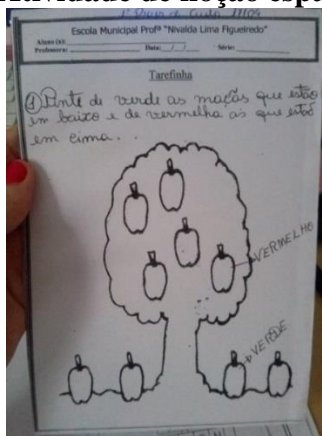 tividade de noção esp
Escola Municipal Profª "Nivalda Lima Figueiredo"
Aluno (a):
Professora: Data: / / Série:
Tarefinha
① Pinte de verde as maçãs que estão
em baixo e de vermelha as que estão
em cima. . .
VERMELHO
VERDE